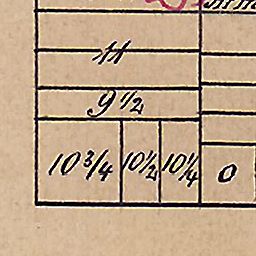 9 1/2
10 3/4 10 1/2 10 1/4 0